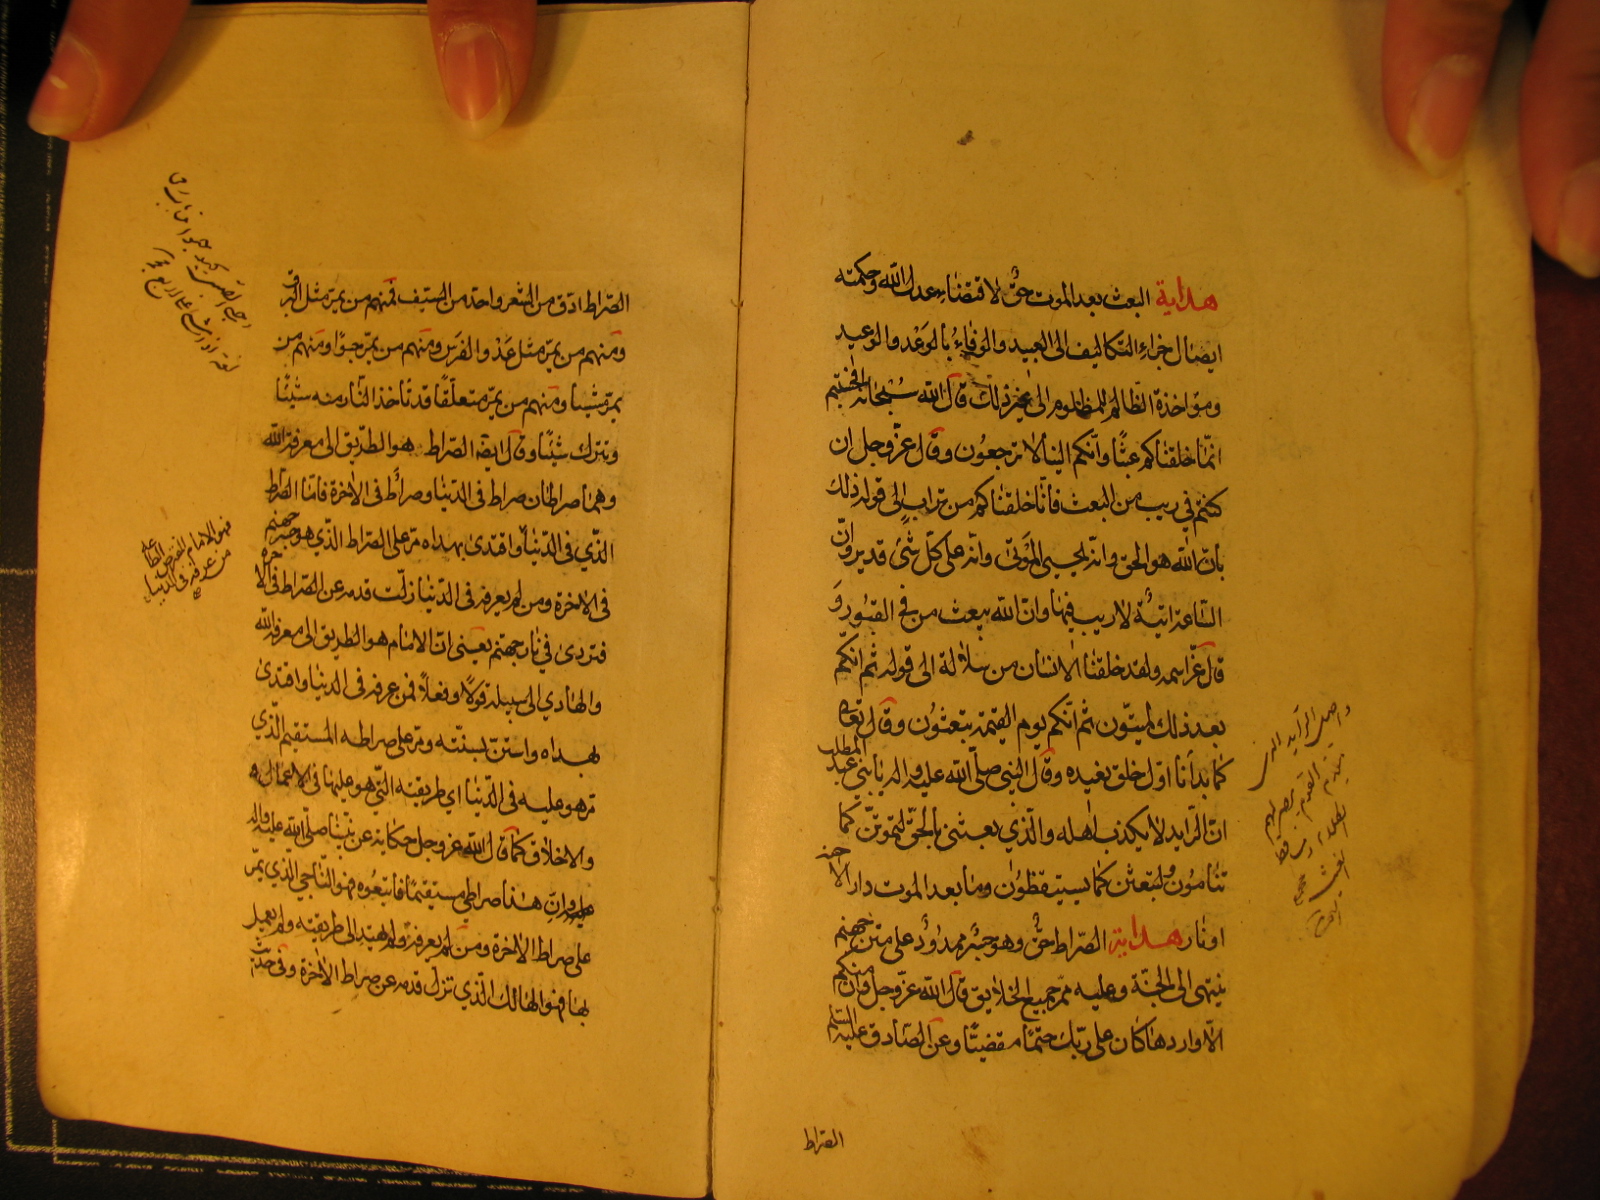 هداية البعث بعد الموت حق لاقتضاء عدل الله وحكمته
ايصال جزاء التكاليف الى العبيد والوفاء بالوعد والوعيد
ومؤاخذة الظالم للمظلوم الى غير ذلك قال الله سبحانه افحسبتم
انما خلقناكم عبثا وانكم الينا لا ترجعون وقال عز وجل ان
كنتم في ريب من البعث فانا خلقناكم من تراب الى قوله ذلك
بان الله هو الحق وانه يحيي الموتى وانه على كل شئ قدير وان
الساعة اتية لا ريب فيها وان الله يبعث من في القبور و
قال عز اسمه ولقد خلقنا الانسان من سلالة الى قوله ثم انكم
بعد ذلك لميتون ثم انكم يوم القيمة تبعثون وقال تعالى
كما بدأنا اول خلق نعيده وقال النبي صلى الله عليه واله يا بني عبد المطلب
ان الرايد لا يكذب اهله والذي بعثني بالحق لتموتن كما
تنامون ولتبعثن كما يستيقظون وما بعد الموت دار الا جنة
او نار هداية الصراط حق وهو جسر ممدود على متن جهنم
ينتهى الى الجنة وعليه ممر جميع الخلايق قال الله عز وجل وان منكم
الا واردها كان على ربك حتما مقضيا وعن الصادق عليه السلم
الصراط
الصراط ادق من الشعر واحد من السيف فمنهم من يمر مثل البرق
ومنهم من يمر مثل عدو الفرس ومنهم من يمر حبوا ومنهم من
يمر مشيا ومنهم من يمر متعلقا قد تاخذ النار منه شيئا
وتترك شيئا وقال ايضا الصراط هو الطريق الى معرفة الله
وهما صراطان صراط في الدنيا وصراط في الاخرة فاما الصراط
الذي في الدنيا واقتدى بهداه مر على الصراط الذي هو جسر جهنم
في الاخرة ومن لم يعرفه في الدنيا زلت قدمه عن الصراط في الاخرة
فتردى في نار جهنم يعني ان الامام هو الطريق الى معرفة الله
والهادي الى سبيله قولا وفعلا فمن عرفه في الدنيا واقتدى
بهداه واستن بسنته ومر على صراطه المستقيم الذي
مر هو عليه في الدنيا اي طريقته التي هو عليها في الاعمال
والاخلاق كما قال الله عز وجل حكاية عن نبينا صلى الله عليه واله
وان هذا صراطي مستقيما فاتبعوه فهو الناجي الذي يمر
على صراط الاخرة ومن لم يعرفه ولم يهتد الى طريقته ولم يعمل
بها فهو الهالك الذي تزل قدمه عن صراط الاخرة وفي حديث
فهو الامام المفترض الطاعة
من عرفه في الدنيا